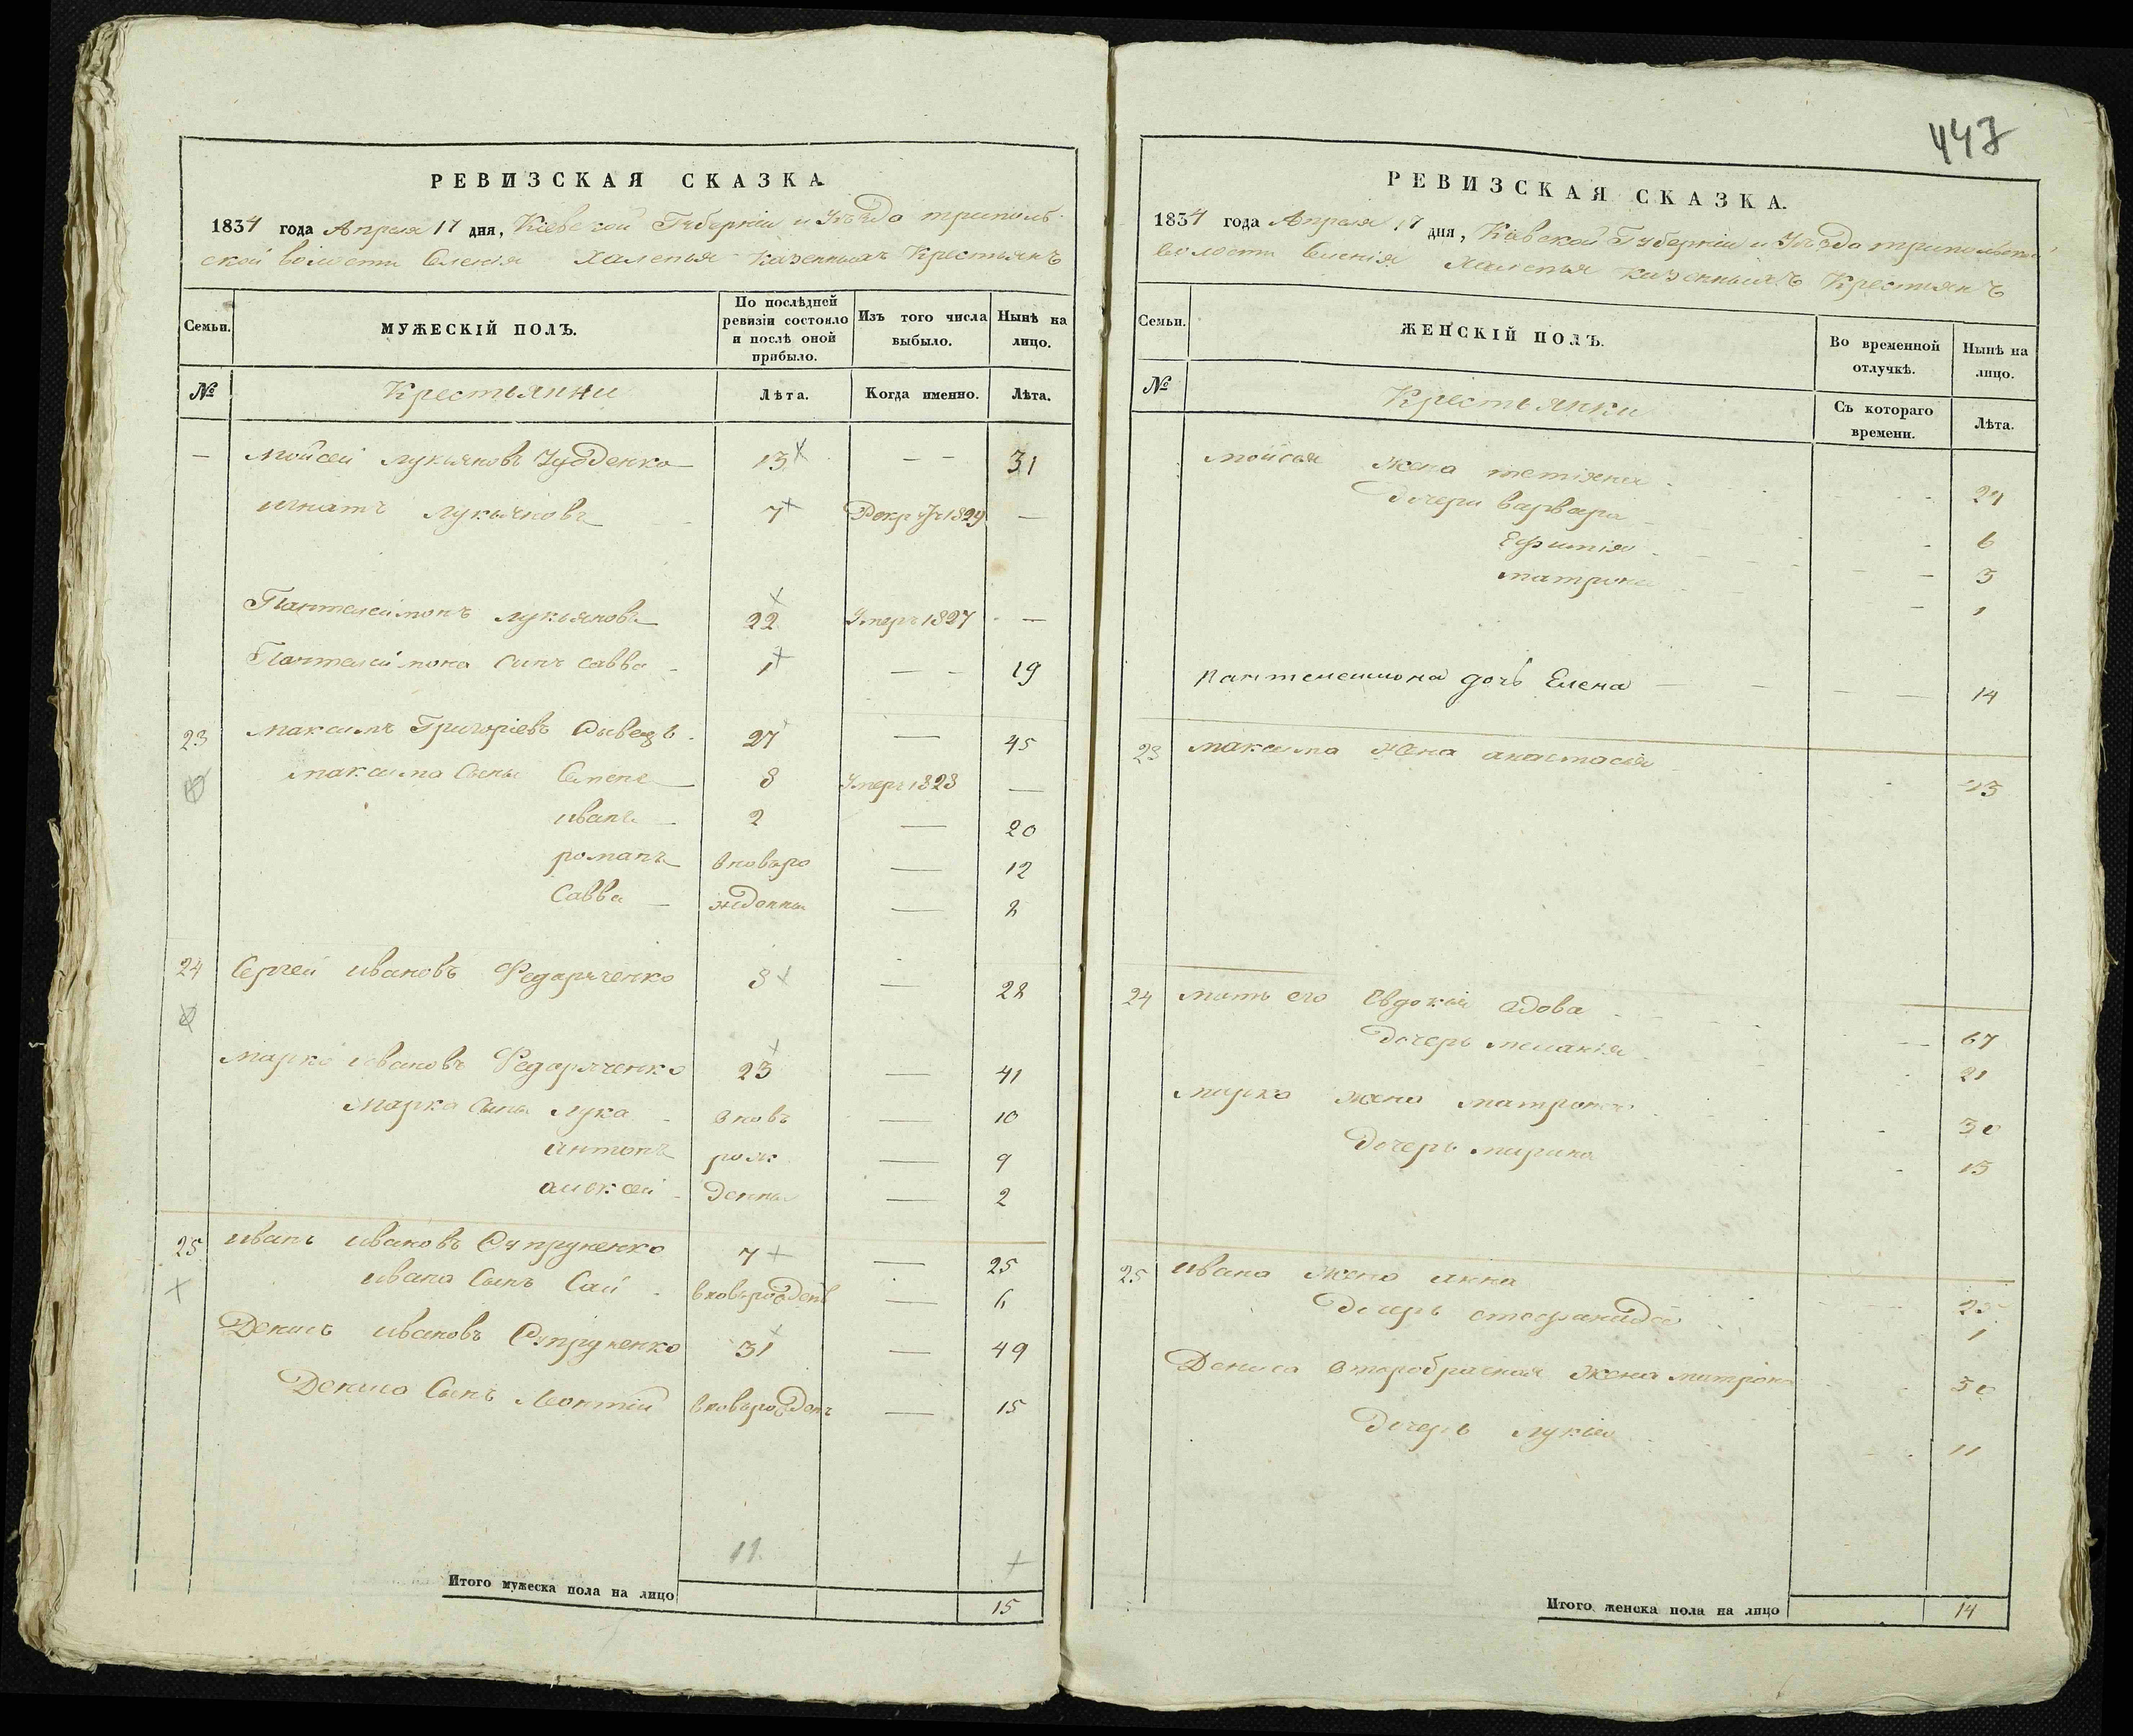 447
РЕВИЗСКАЯ СКАЗКА
1834 года Апреля 17 дня, Киевской Губернии и Уѣзда триполь
ской волости Селенія Халепья казенныхъ Крестьянъ
Семьи.
МУЖЕСКІЙ ПОЛЪ.
По послѣдней ревизіи состояло и послѣ оной прибыло.
Изъ того числа выбыло.
Нынѣ на лицо.
№
Крестьянни
Лѣта.
Когда именно.
Лѣта.
— Мойсей Лукьяновъ 13 — — 31
Игнатъ Лукьяновъ 7 1829 —
Пантелеймонъ Лукьяновъ 22 Умеръ 1827 —
Пантелеймона Сынъ Савва 1 — — 19
23 Максимъ Григоріевъ 27 — 45
Максима Сыны Семенъ 8 Умеръ 1828 —
Иванъ 2 — 20
Романъ вновьро — 12
Савва жденны — 2
24 Сергей Ивановъ Федарченко 8 — 28
Марко Ивановъ Федарченко 23 — 41
Марка Сыны Лука вновь — 10
Антонъ рож — 9
Алексей денны — 2
25 Иванъ Ивановъ Супруненко 7 — 25
Ивана Сынъ вновьрожденъ — 6
Денисъ Ивановъ Супруненко 31 — 49
Дениса Сынъ Леонтій вновьрожденъ — 15
11
Итого мужеска пола на лицо 15
РЕВИЗСКАЯ СКАЗКА.
1834 года Апреля 17 дня, Киевской Губерніи и Уѣзда трипольской
волости Селенія Халепья казенныхъ Крестьянъ
Семьи.
ЖЕНСКІЙ ПОЛЪ.
Во временной отлучкѣ.
Нынѣ на лицо.
№
Крестьянки
Съ котораго времени.
Лѣта.
Мойсея жена Тетіяна 29
Дочери Варвара 6
Ефимія 3
Матрона 1
Пантелеимона дочь Елена — — — — 14
23 Максима жена Анастасія 43
24 Мать его Евдокія вдова 67
Дочерь Меланія 21
Марка жена Матрона 30
Дочерь Марина 13
25 Ивана жена Анна 25
Дочерь Стефанида 1
Дениса второбрачная жена Матрона 30
Дочерь Лукія 11
Итого женска пола на лицо 14